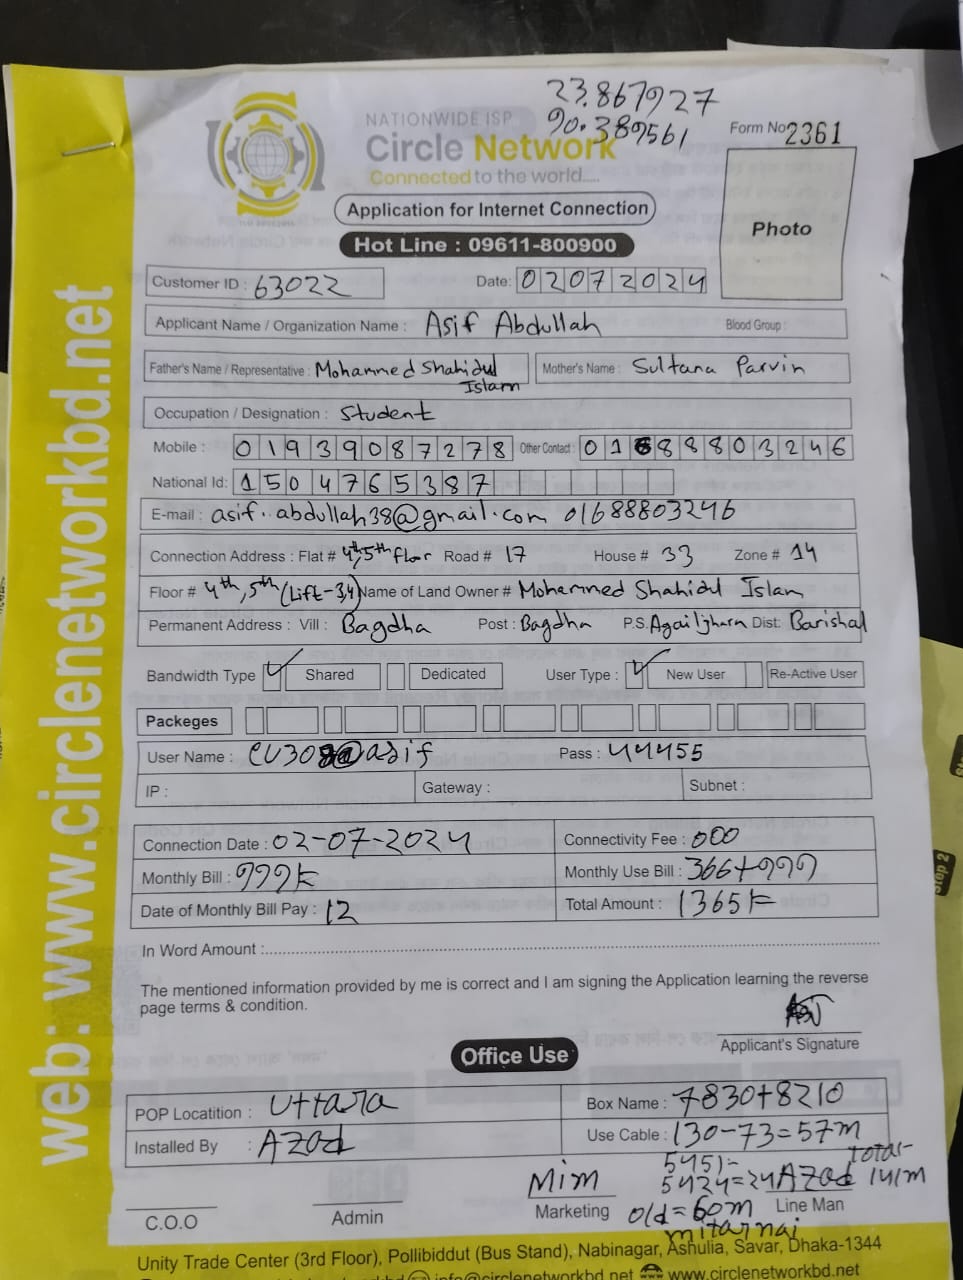 23.867927
90.389561
NATIONWIDE ISP
Circle Network
Connected to the world.....
Form No 2361
Application for Internet Connection
Photo
Hot Line : 09611-800900
Customer ID : 63022 Date: 02072024
Applicant Name / Organization Name : Asif Abdullah Blood Group :
Father's Name / Representative : Mohammed Shahidul Islam Mother's Name : Sultana Parvin
Occupation / Designation : Student
Mobile : 01939087278 Other Contact : 01688803246
National Id: 1504765387
E-mail : asif.abdullah38@gmail.com 01688803246
Connection Address : Flat # 4th,5th flor Road # 17 House # 33 Zone # 14
Floor # 4th, 5th (Lift-3,4) Name of Land Owner # Mohammed Shahidul Islam
Permanent Address : Vill : Bagdha Post : Bagdha P.S. Agailjhara Dist: Barishal
Bandwidth Type Shared Dedicated User Type : New User Re-Active User
Packeges
User Name : @asif Pass : 44455
IP : Gateway : Subnet :
Connection Date : 02-07-2024 Connectivity Fee : 000
Monthly Bill : 999 Monthly Use Bill : 366+999
Date of Monthly Bill Pay : 12 Total Amount : 1365
In Word Amount :
The mentioned information provided by me is correct and I am signing the Application learning the reverse
page terms & condition.
Applicant's Signature
Office Use
POP Locatition : Uttara Box Name : 7830+8210
Installed By : Azad Use Cable : 130-73=57m
5451:-
5424=24 Azad total 141m
Mim
C.O.O Admin Marketing old=60m Line Man
Unity Trade Center (3rd Floor), Pollibiddut (Bus Stand), Nabinagar, Ashulia, Savar, Dhaka-1344
info@circlenetworkbd.net www.circlenetworkbd.net
web: www.circlenetworkbd.net
Step 2